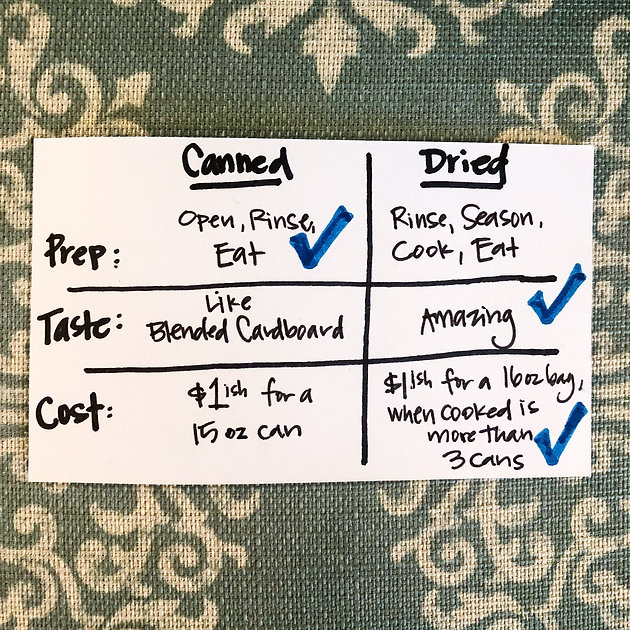 Canned
Dried
Prep:
Open, Rinse,
Eat
Rinse, Season,
Cook, Eat
Taste:
Like
Blended Cardboard
Amazing
Cost:
$1ish for a
15 oz can
$1ish for a 16oz bag,
when cooked is
more than
3 cans